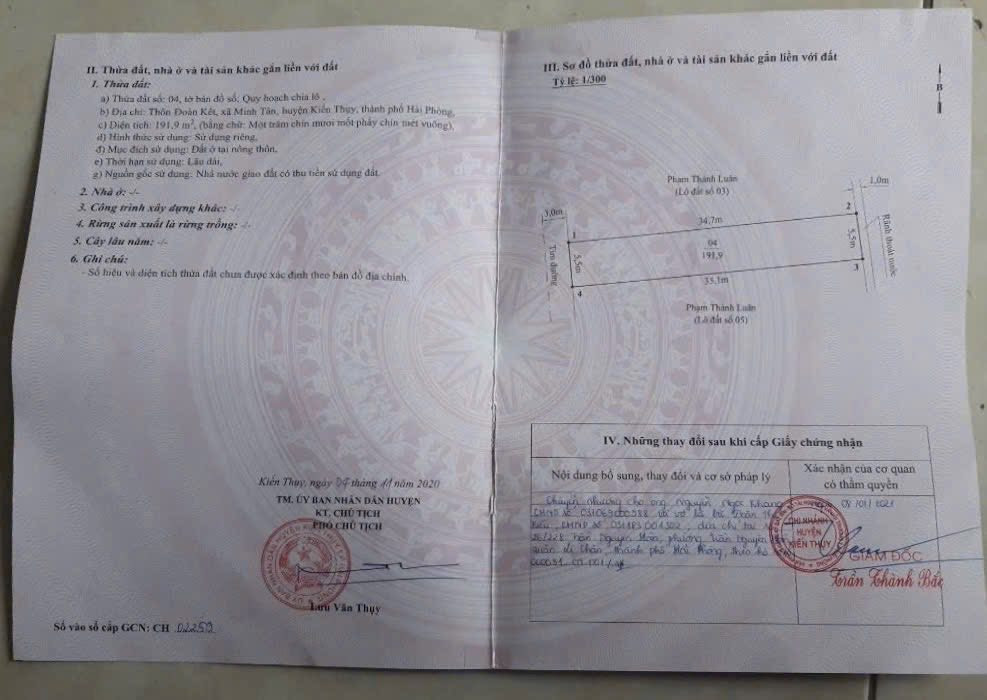 II. Thửa đất, nhà ở và tài sản khác gắn liền với đất
1. Thửa đất:
a) Thửa đất số: 04, tờ bản đồ số: Quy hoạch chia lô,
b) Địa chỉ: Thôn Đoàn Kết, xã Minh Tân, huyện Kiến Thụy, thành phố Hải Phòng,
c) Diện tích: 191,9 m², (bằng chữ: Một trăm chín mươi mốt phẩy chín mét vuông),
d) Hình thức sử dụng: Sử dụng riêng,
đ) Mục đích sử dụng: Đất ở tại nông thôn,
e) Thời hạn sử dụng: Lâu dài,
g) Nguồn gốc sử dụng: Nhà nước giao đất có thu tiền sử dụng đất.
2. Nhà ở: -/-
3. Công trình xây dựng khác: -/-
4. Rừng sản xuất là rừng trồng: -/-
5. Cây lâu năm: -/-
6. Ghi chú:
- Số hiệu và diện tích thửa đất chưa được xác định theo bản đồ địa chính.
Kiến Thụy, ngày 04 tháng 11 năm 2020
TM. ỦY BAN NHÂN DÂN HUYỆN
KT. CHỦ TỊCH
PHÓ CHỦ TỊCH
Lưu Văn Thụy
Số vào sổ cấp GCN: CH 02259
III. Sơ đồ thửa đất, nhà ở và tài sản khác gắn liền với đất
Tỷ lệ: 1/300
B
Phạm Thành Luân
(Lô đất số 03)
1,0m
3,0m
1
34,7m
2
Tim đường
5,5m
04
191,9
5,5m
Rãnh thoát nước
4
35,1m
3
Phạm Thành Luân
(Lô đất số 05)
IV. Những thay đổi sau khi cấp Giấy chứng nhận
Nội dung bổ sung, thay đổi và cơ sở pháp lý
Xác nhận của cơ quan
có thẩm quyền
Chuyển nhượng cho ông Nguyễn Ngọc Khang
CMND số 031069000588 và vợ là bà Đoàn
số 031183001302, địa chỉ tại
26/228 Trần Nguyên Hãn, phường Trần Nguyên
quận Lê Chân, thành phố Hải Phòng, theo hồ
000031
08/01/2021
CHI NHÁNH
HUYỆN
KIẾN THỤY
GIÁM ĐỐC
Trần Thành Bắc